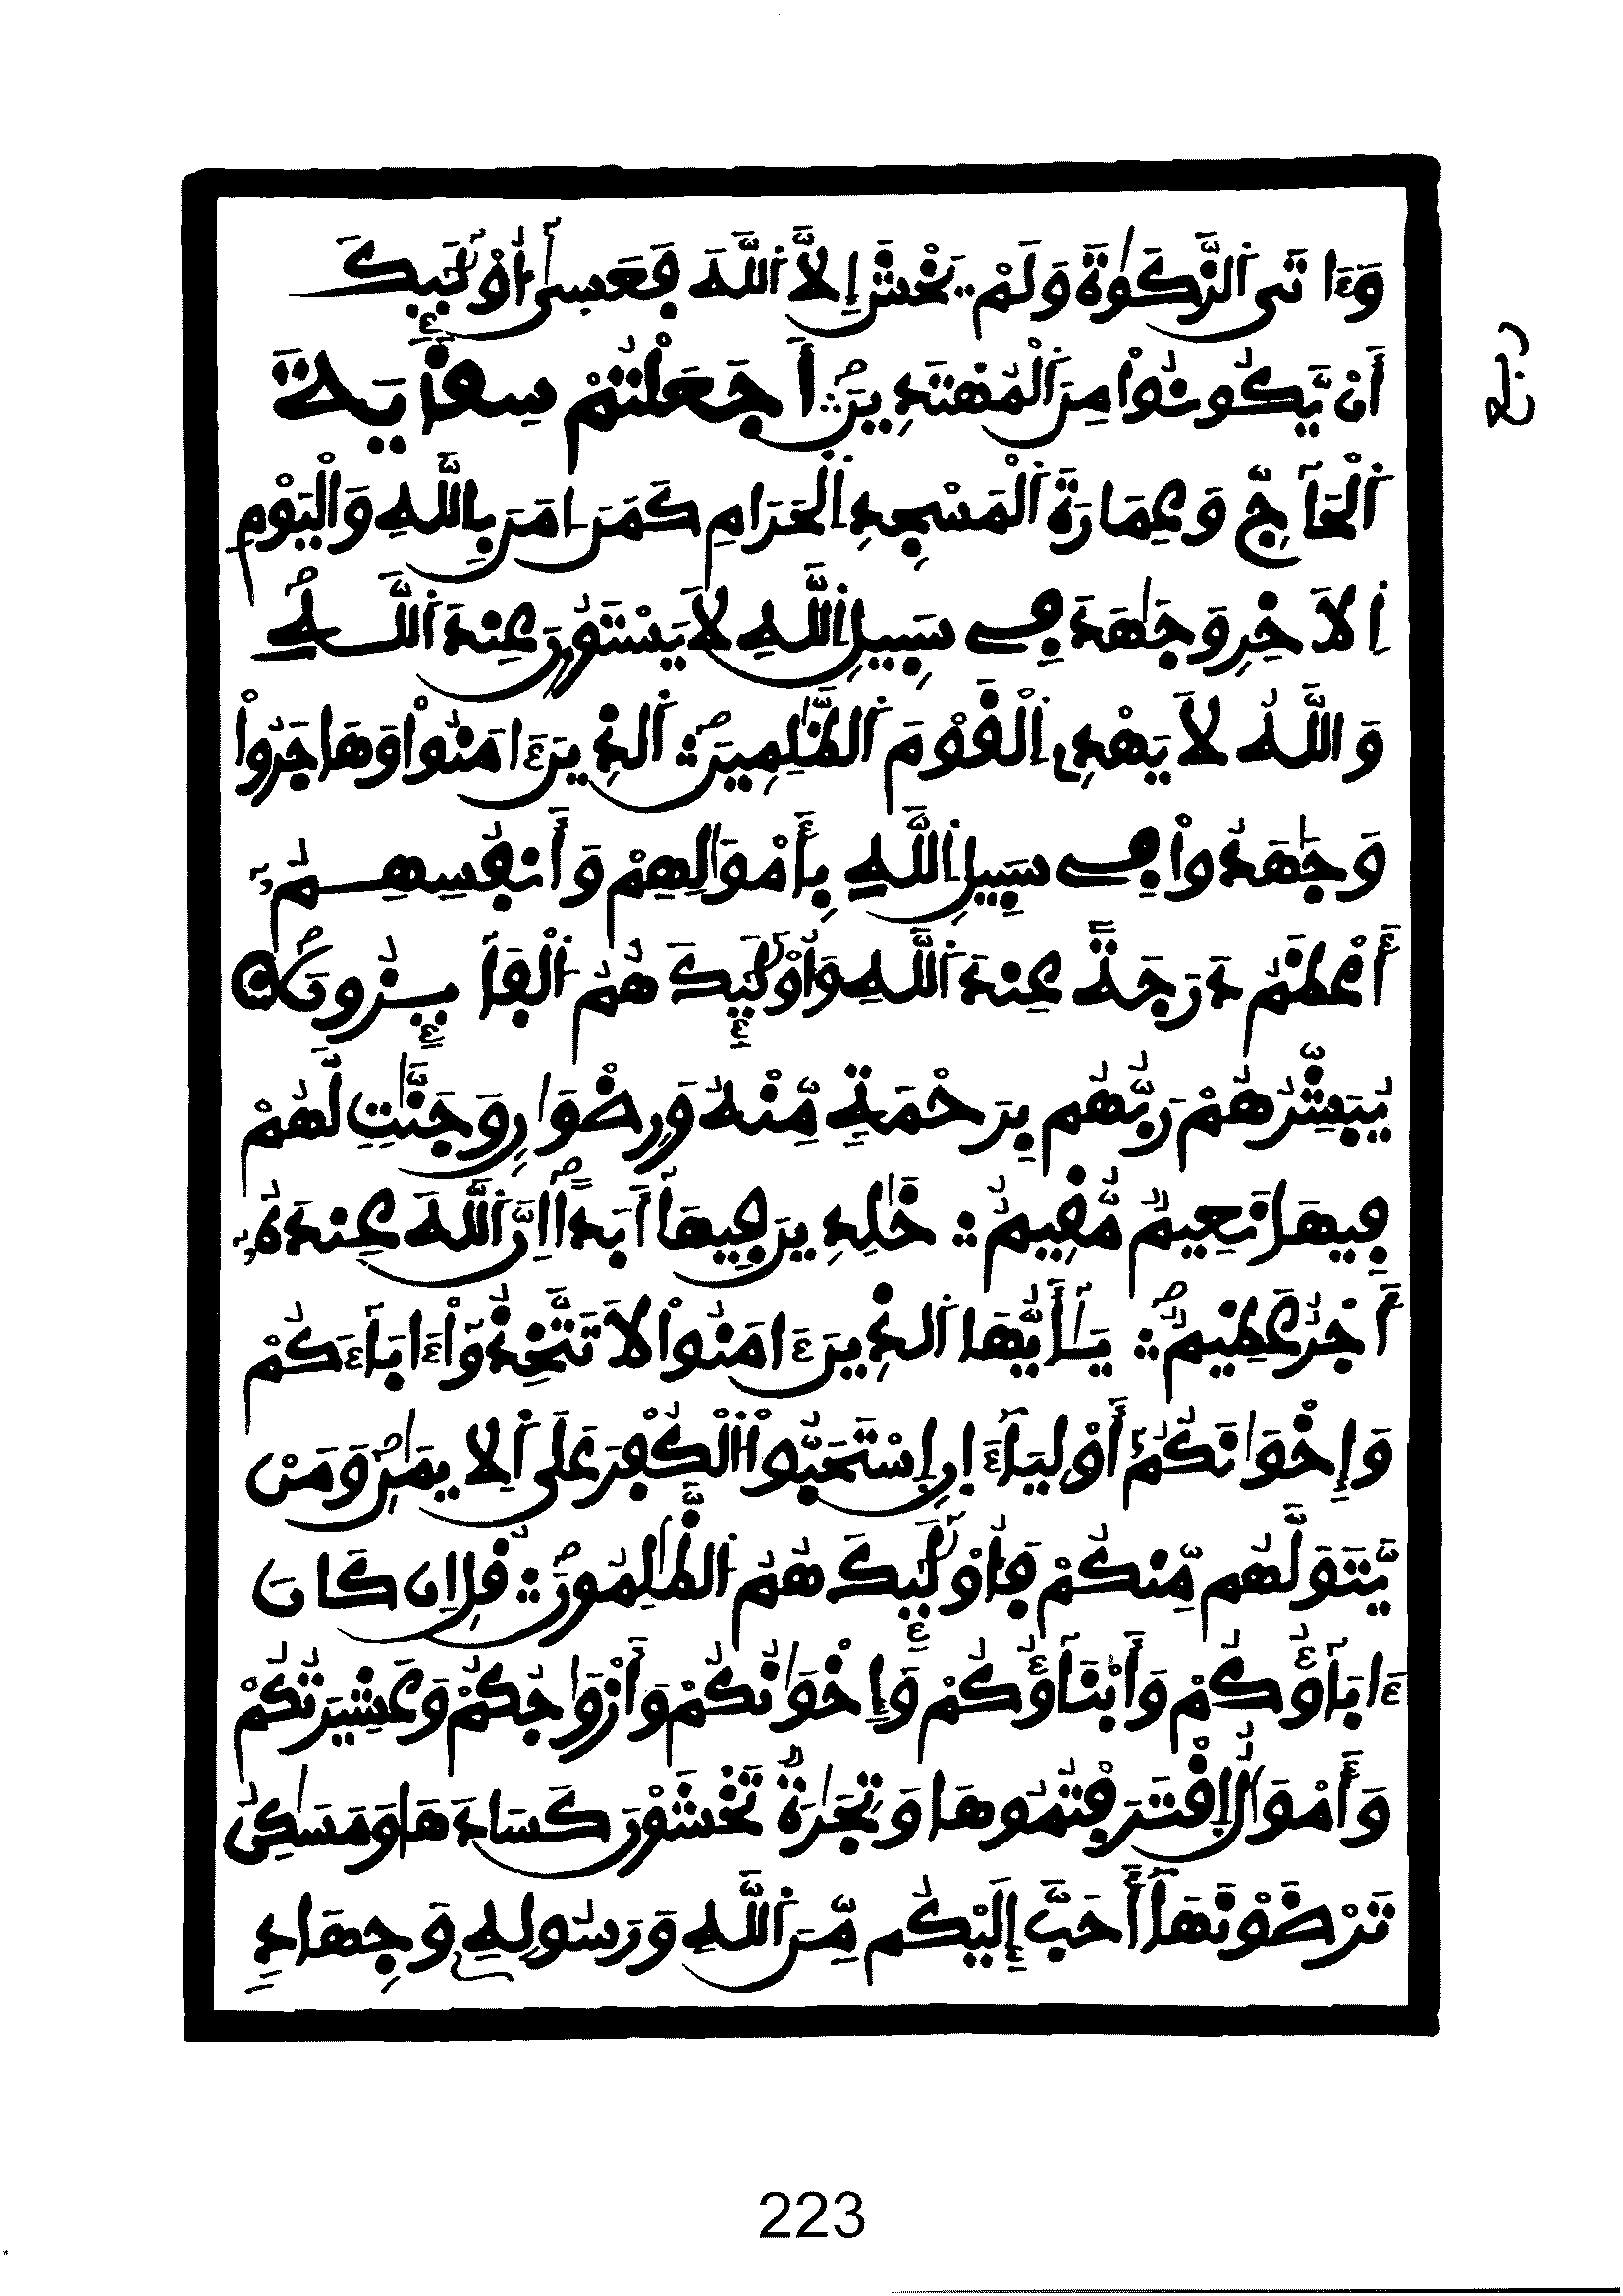 وَءَاتَى اَلزَّكَوٰةَ وَلَمْ يَخْشَ إِلَّا اَللَّهَ فَعَسٰىٓ أُوْلَٰٓئِكَ
أَنْ يَّكُونُواْ مِنَ اَلْمُهْتَدِينَ ۞ أَجَعَلْتُمْ سِقَايَةَ
اَلْحَآجِّ وَعِمَارَةَ اَلْمَسْجِدِ اِلْحَرَامِ كَمَنَ اٰمَنَ بِاللَّهِ وَالْيَوْمِ
اِلَاخِرِ وَجَٰهَدَ فِے سَبِيلِ اِللَّهِ لَا يَسْتَوُۥنَ عِندَ اَللَّهِ
وَاللَّهُ لَا يَهْدِے اِلْقَوْمَ اَلظَّٰلِمِينَ ۞ اَلذِينَ ءَامَنُواْ وَهَاجَرُواْ
وَجَٰهَدُواْ فِے سَبِيلِ اِللَّهِ بِأَمْوَٰلِهِمْ وَأَنفُسِهِمُۥٓ
أَعْظَمُ دَرَجَةً عِندَ اَللَّهِ وَأُوْلَٰٓئِكَ هُمُ اَلْفَآئِزُونَ ۞
يُبَشِّرُهُمْ رَبُّهُم بِرَحْمَةٍ مِّنْهُ وَرِضْوَٰنٍ وَجَنَّٰتٍ لَّهُمْ
فِيهَا نَعِيمٌ مُّقِيمٌ ۞ خَٰلِدِينَ فِيهَآ أَبَداً اِنَّ اَللَّهَ عِندَهُۥٓ
أَجْرٌ عَظِيمٌ ۞ يَٰٓأَيُّهَا اَلذِينَ ءَامَنُواْ لَا تَتَّخِذُوٓاْ ءَابَآءَكُمْ
وَإِخْوَٰنَكُمُۥٓ أَوْلِيَآءَ اِنِ اِسْتَحَبُّواْ اُلْكُفْرَ عَلَى اَلِايمَٰنِ وَمَنْ
يَّتَوَلَّهُم مِّنكُمْ فَأُوْلَٰٓئِكَ هُمُ اَلظَّٰلِمُونَ ۞ قُلِ اِن كَانَ
ءَابَآؤُكُمْ وَأَبْنَآؤُكُمْ وَإِخْوَٰنُكُمْ وَأَزْوَٰجُكُمْ وَعَشِيرَتُكُمْ
وَأَمْوَٰلٌ اِقْتَرَفْتُمُوهَا وَتِجَٰرَةٌ تَخْشَوْنَ كَسَادَهَا وَمَسَٰكِنُ
تَرْضَوْنَهَآ أَحَبَّ إِلَيْكُم مِّنَ اَللَّهِ وَرَسُولِهِۦ وَجِهَادٍ
ربع
223